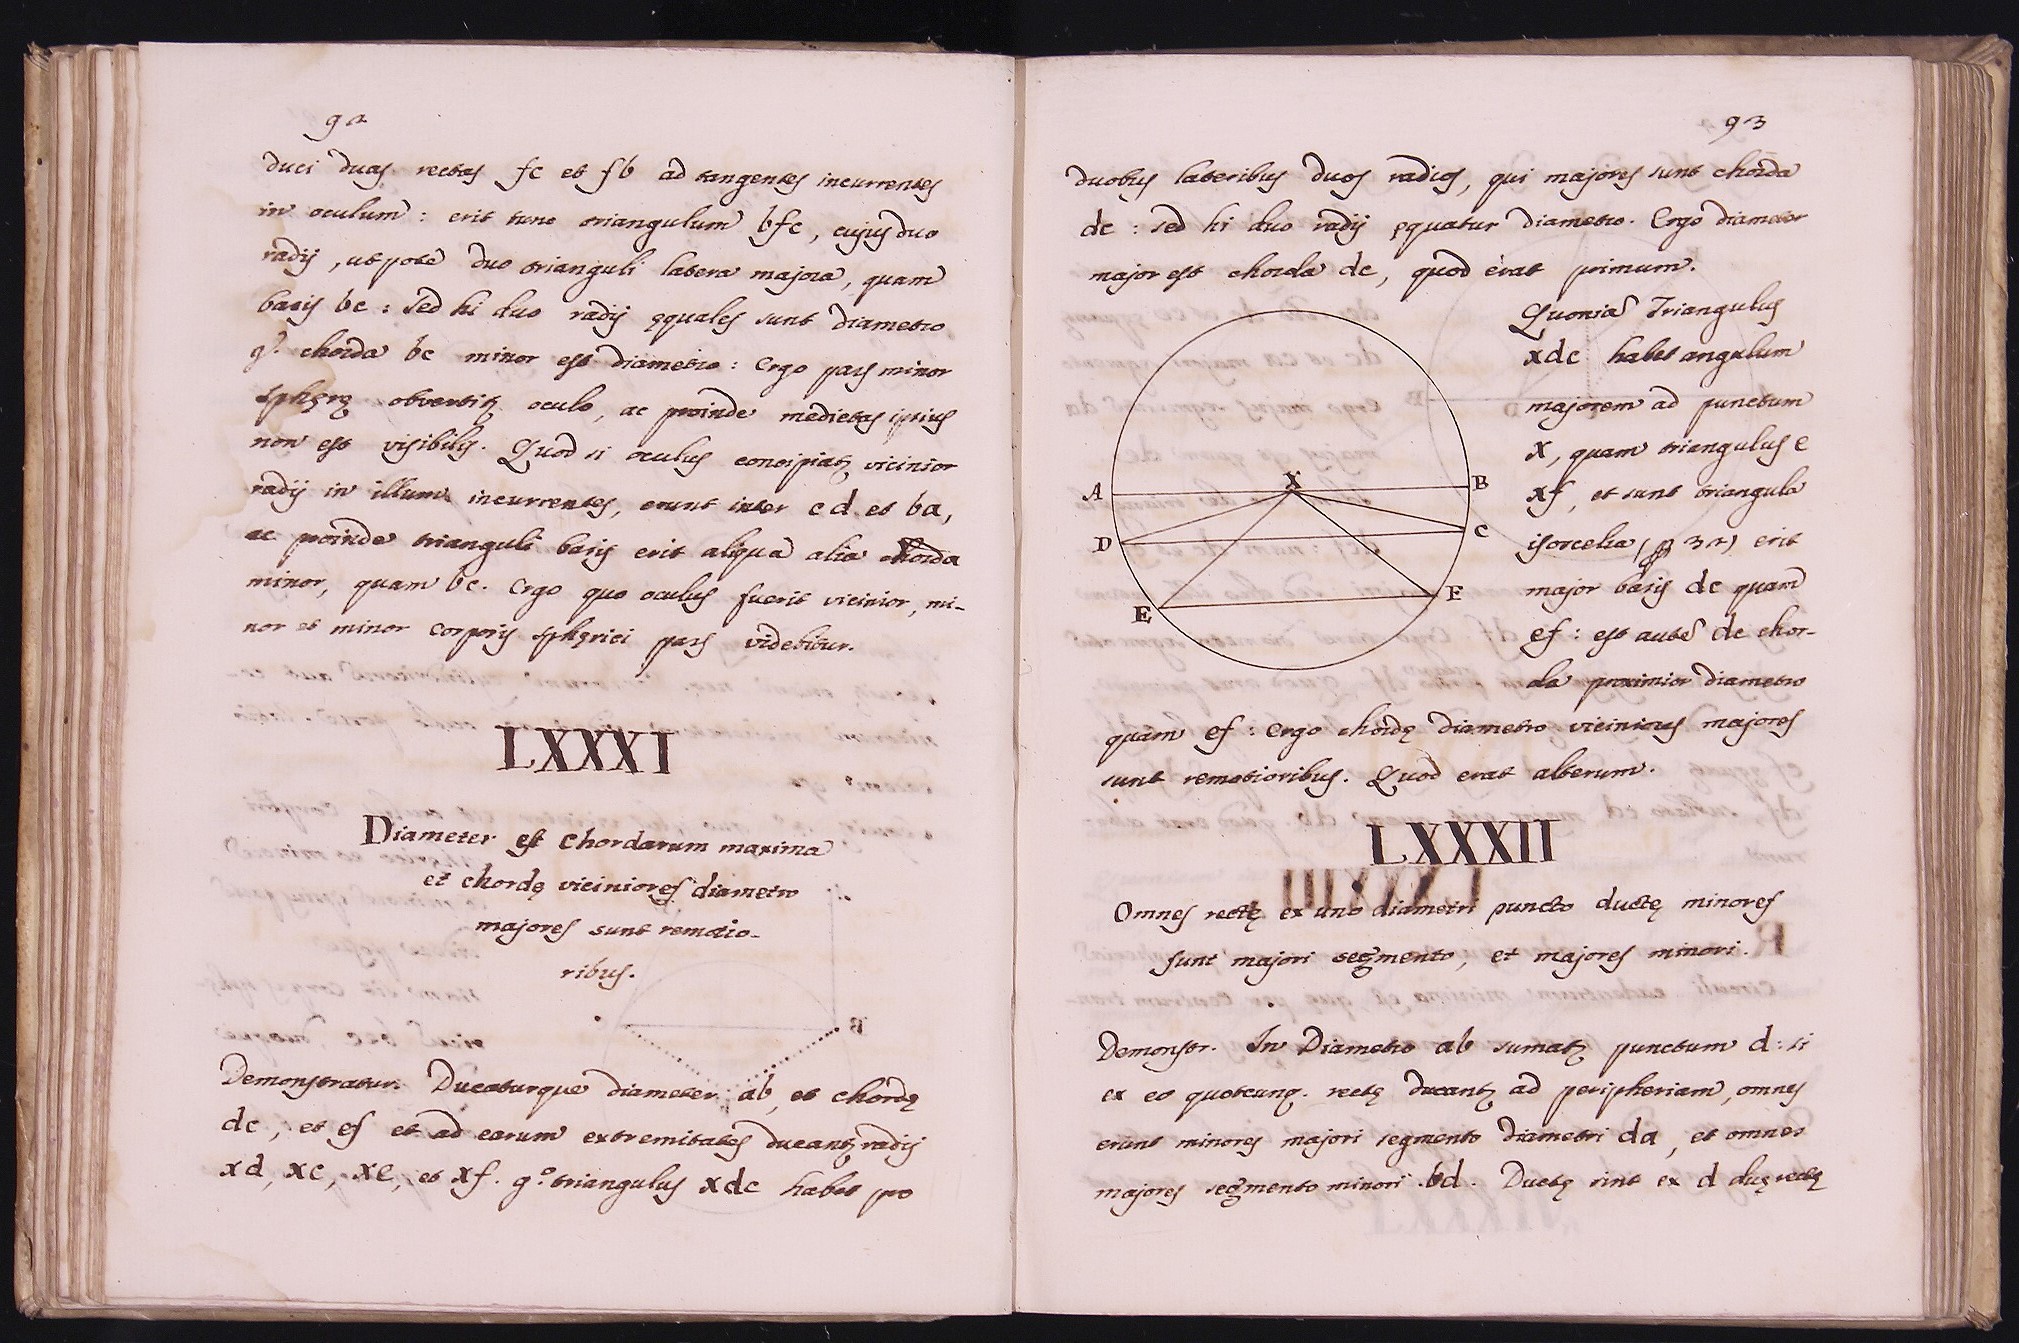 92
duci duas rectas fc et fb ad tangentes incurrentes
in oculum : erit tunc triangulum bfc, cujus duo
radij, utpote duo trianguli latera majora, quam
basis bc : sed hi duo radij ęquales sunt diametro
gͦ. chorda bc minor est diametro : Ergo pars minor
sphęrę obvertitʒ oculo, ac proinde medietas ipsius
non est visibilis. Quod si oculus concipiatʒ vicinior
radij in illum incurrentes, erunt inter cd et ba,
ac proinde trianguli basis erit aliqua alia chorda
minor, quam bc. Ergo quo oculus fuerit vicinior, mi-
nor et minor corporis sphęrici pars videbitur.
LXXXI
Diameter est chordarum maxima
et chordę viciniores diametro
majores sunt remotio-
ribus.
Demonstratur. Ducaturque diameter ab, et chordę
dc, et ef et ad earum extremitates ducantʒ radij
xd, xc, xe, et xf. gͦ. triangulus xdc habet pro
93
duobus lateribus duos radios, qui majores sunt chorda
dc : sed hi duo radij ęquatur diametro. Ergo diameter
major est chorda dc, quod erat primum.
Quoniã Triangulus
xdc habet angulum
majorem ad punctum
x, quam triangulus e
xf, et sunt triangula
isoscelia ( 32) erit
major basis dc quam
ef : est autẽ dc chor-
da proximior diametro
quam ef : ergo chordę diametro viciniores majores
sunt remotioribus. Quod erat alterum.
X
A
B
D
C
E
F
LXXXII
Omnes rectę ex uno diametri puncto ductę minores
sunt majori segmento, et majores minori.
Demonstr. In Diametro ab sumatʒ punctum d : si
ex eo quotcunq. rectę ducantʒ ad peripheriam, omnes
erunt minores majori segmento diametri da, et omnes
majores segmento minori bd. Ductę sint ex d duę rectę